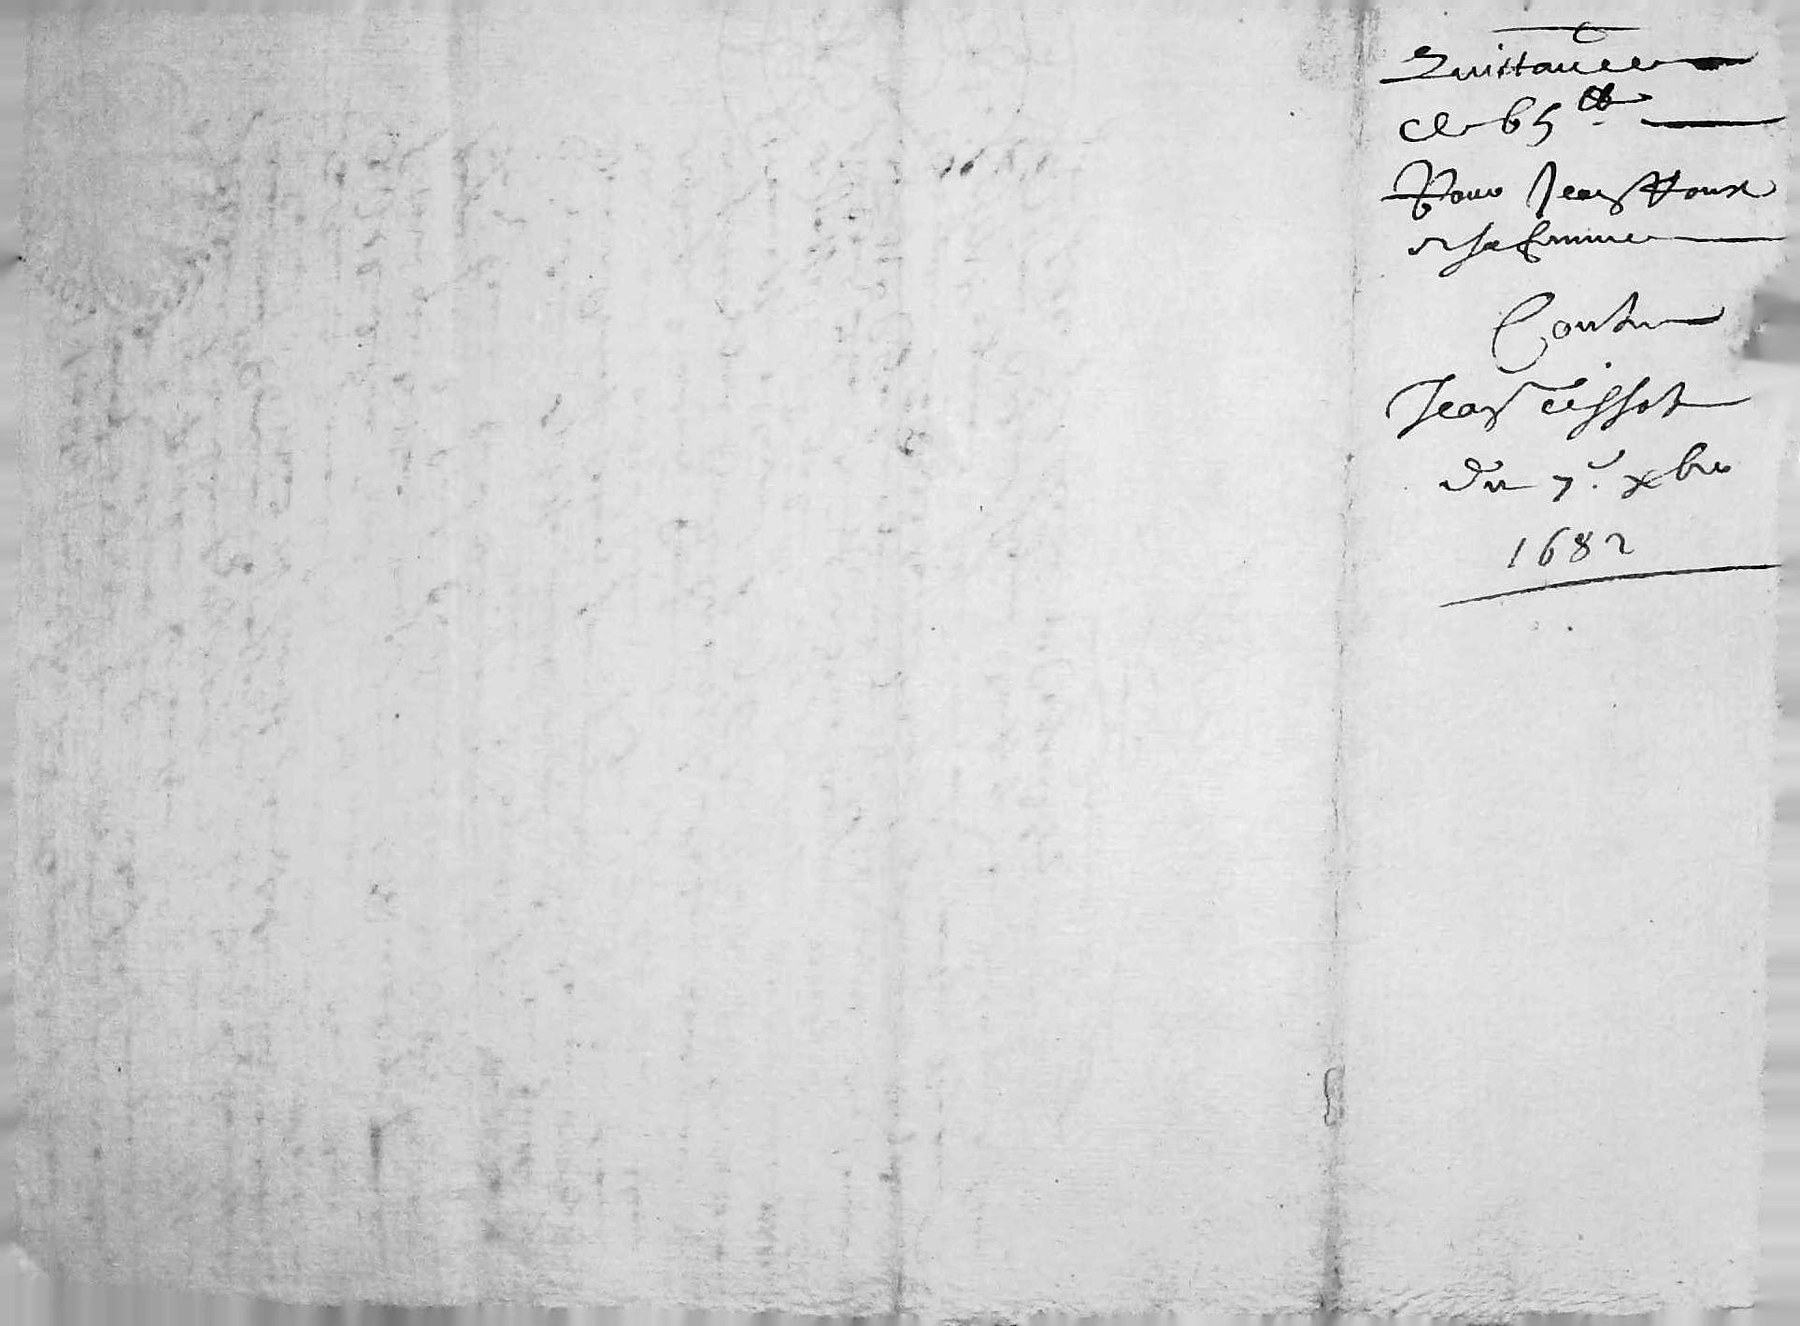 Quittance
de 65 ₶
Pour Jean Houx
et sa femme
Contre
Jean Tissot
Du 7.e xbre
1682